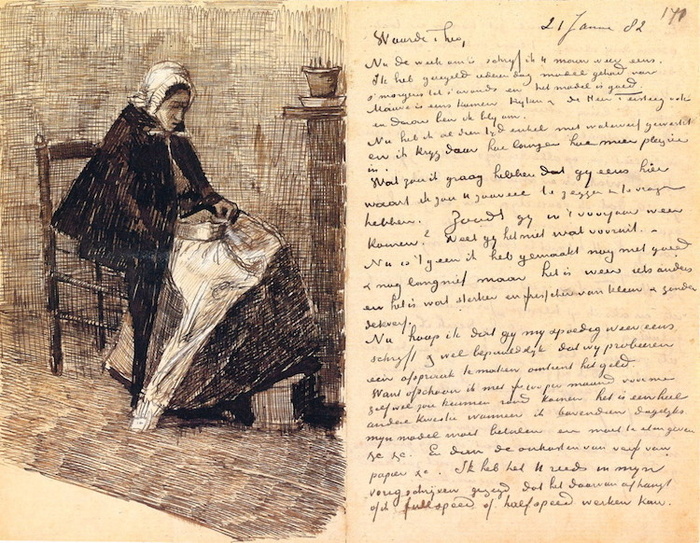 21 82
Waarde Theo,
Nu de week om is schryf ik U maar weer eens.
Ik heb geregeld iederen dag model gehad van
s'morgens tot s'avonds en het model is goed.
Mauve is eens komen kyken & de Heer Tersteeg ook
en daar ben ik bly om.
Nu heb ik al dien tyd enkel met waterverf gewerkt
en ik kryg daar hoe langer hoe meer plezier
in.
Wat zou ik graag hebben dat gy eens hier
waart ik zou U zooveel te zeggen & te vragen
hebben. Zoudt gy in 't voorjaar weer
komen? Weet gy het met wat vooruit. –
Nu is 't geen ik heb gemaakt nog niet goed
& nog lang niet maar het is weer iets anders
en het is wat sterker en frisscher van kleur & zonder
dekverf.
Nu hoop ik dat gy my spoedig weer eens
schryft & wel bepaaldelyk dat wy probeeren
een afspraak te maken omtrent het geld.
Want ofschoon ik met per maand voor me
zelf wel zou kunnen rond komen het is een heel
andere kwestie wanneer ik bovendien dagelyks
myn model moet betalen en moet te eten geven
&c &c. En dien de onkosten van verf van
papier &c. Ik heb het U reeds in myn
vorig schryven gezegd dat het daarvan afhangt
of ik full speed of half speed werken kan.